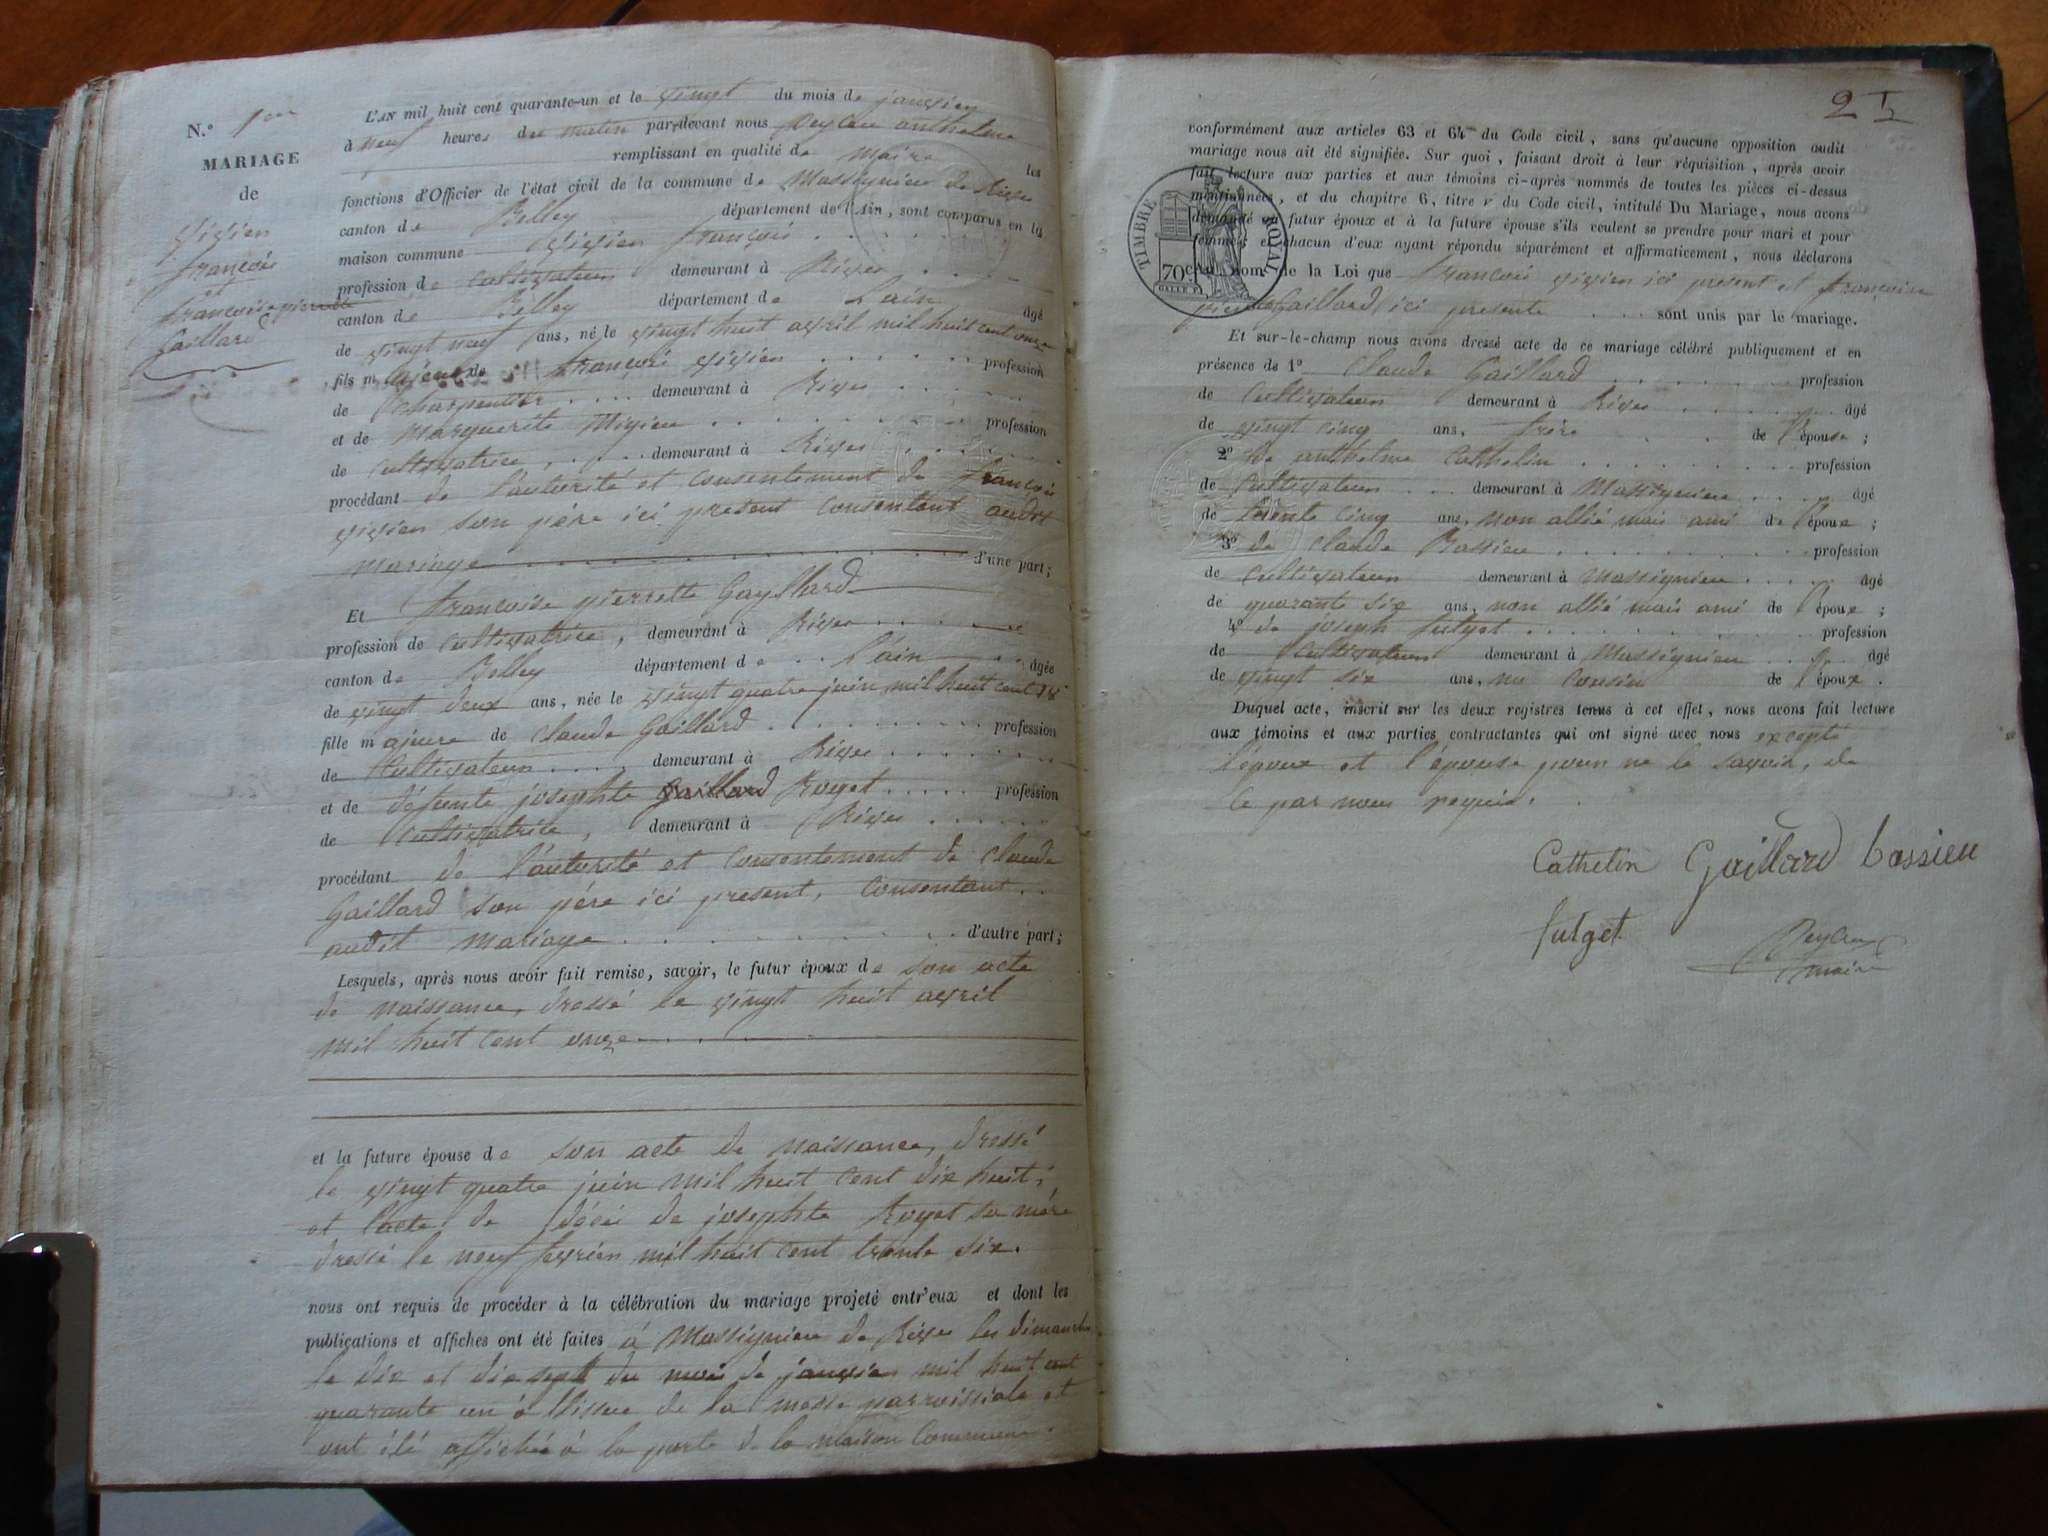 N.o 1er
MARIAGE
de
Vivien
françois
et
françoise pierrette
Gaillard
L'AN mil huit cent quarante-un et le vingt du mois de janvier
à neuf heures du matin pardevant nous Peyson anthelme
remplissant en qualité de maire les
fonctions d'Officier de l'état civil de la commune de Massignieu de Rives
canton de Belley département de l'Ain, sont comparus en la
maison commune Vivien françois
profession de cultivateur demeurant à Rives
canton de Belley département de Lain âgé
de vingt neuf ans, né le vingt huit avril mil huit cent onze
fils majeur de françois vivien profession
de charpentier demeurant à Rives
et de marguerite Migieu profession
de cultivatrice, demeurant à Rives
procédant de l'autorité et consentement de françois
vivien son père ici present consentant audit
mariage d'une part;
Et françoise pierrette Gayllard
profession de cultivatrice, demeurant à Rives
canton de Belley département de l'ain âgée
de vingt deux ans, née le vingt quatre juin mil huit cent 18
fille majeure de claude Gaillard profession
de Cultivateur demeurant à Rives
et de défunte josephte Gaillard Royet profession
de Cultivatrice, demeurant à Rives
procédant de l'autorité et consentement de claude
Gaillard son père ici present, consentant
audit mariage d'autre part;
Lesquels, après nous avoir fait remise, savoir, le futur époux de son acte
de naissance, dressé le vingt huit avril
mil huit cent onze
et la future épouse de son acte de naissance, dressé
le vingt quatre juin mil huit cent dix huit;
et l'acte de décé de josephte Royet sa mère
dressé le neuf fevrier mil huit cent trente six.
nous ont requis de procéder à la célébration du mariage projeté entr'eux et dont les
publications et affiches ont été faites à Massignieu de Rives les dimanches
le dix et dix sept du mois de janvier mil huit cent
quarante un à l'issue de la messe parroissiale et
ont été affichés à la porte de la maison commune.
2
conformément aux articles 63 et 64 du Code civil, sans qu'aucune opposition audit
mariage nous ait été signifiée. Sur quoi, faisant droit à leur réquisition, après avoir
fait lecture aux parties et aux témoins ci-après nommés de toutes les pièces ci-dessus
mentionnées, et du chapitre 6, titre V du Code civil, intitulé Du Mariage, nous avons
demandé au futur époux et à la future épouse s'ils veulent se prendre pour mari et pour
femme; et chacun d'eux ayant répondu séparément et affirmativement, nous déclarons
au nom de la Loi que françois vivien ici present et françoise
pierrette Gaillard ici presente sont unis par le mariage.
TIMBRE ROYAL
70 c.
Et sur-le-champ nous avons dressé acte de ce mariage célébré publiquement et en
présence de 1o Claude Gaillard profession
de Cultivateur demeurant à Rives âgé
de vingt cinq ans, frère de l'épouse;
2o de anthelme Cathelin profession
de Cultivateur demeurant à Massignieu âgé
de trente cinq ans, non allié mais ami de l'époux;
3o de claude Bassieu profession
de cultivateur demeurant à Massignieu âgé
de quarante six ans, non allié mais ami de l'époux;
4o de joseph fulget profession
de Cultivateur demeurant à Massignieu âgé
de vingt six ans, un cousin de l'époux.
Duquel acte, inscrit sur les deux registres tenus à cet effet, nous avons fait lecture
aux témoins et aux parties contractantes qui ont signé avec nous excepté
l'époux et l'épouse pour ne le savoir, de
ce par nous requis.
Cathelin Gaillard bassieu
fulget
maire